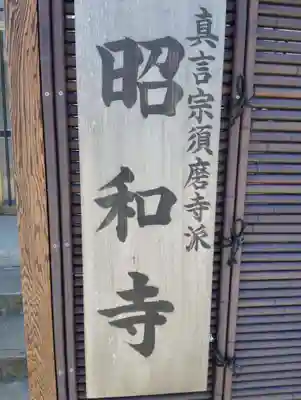 真言宗須磨寺派
昭和寺